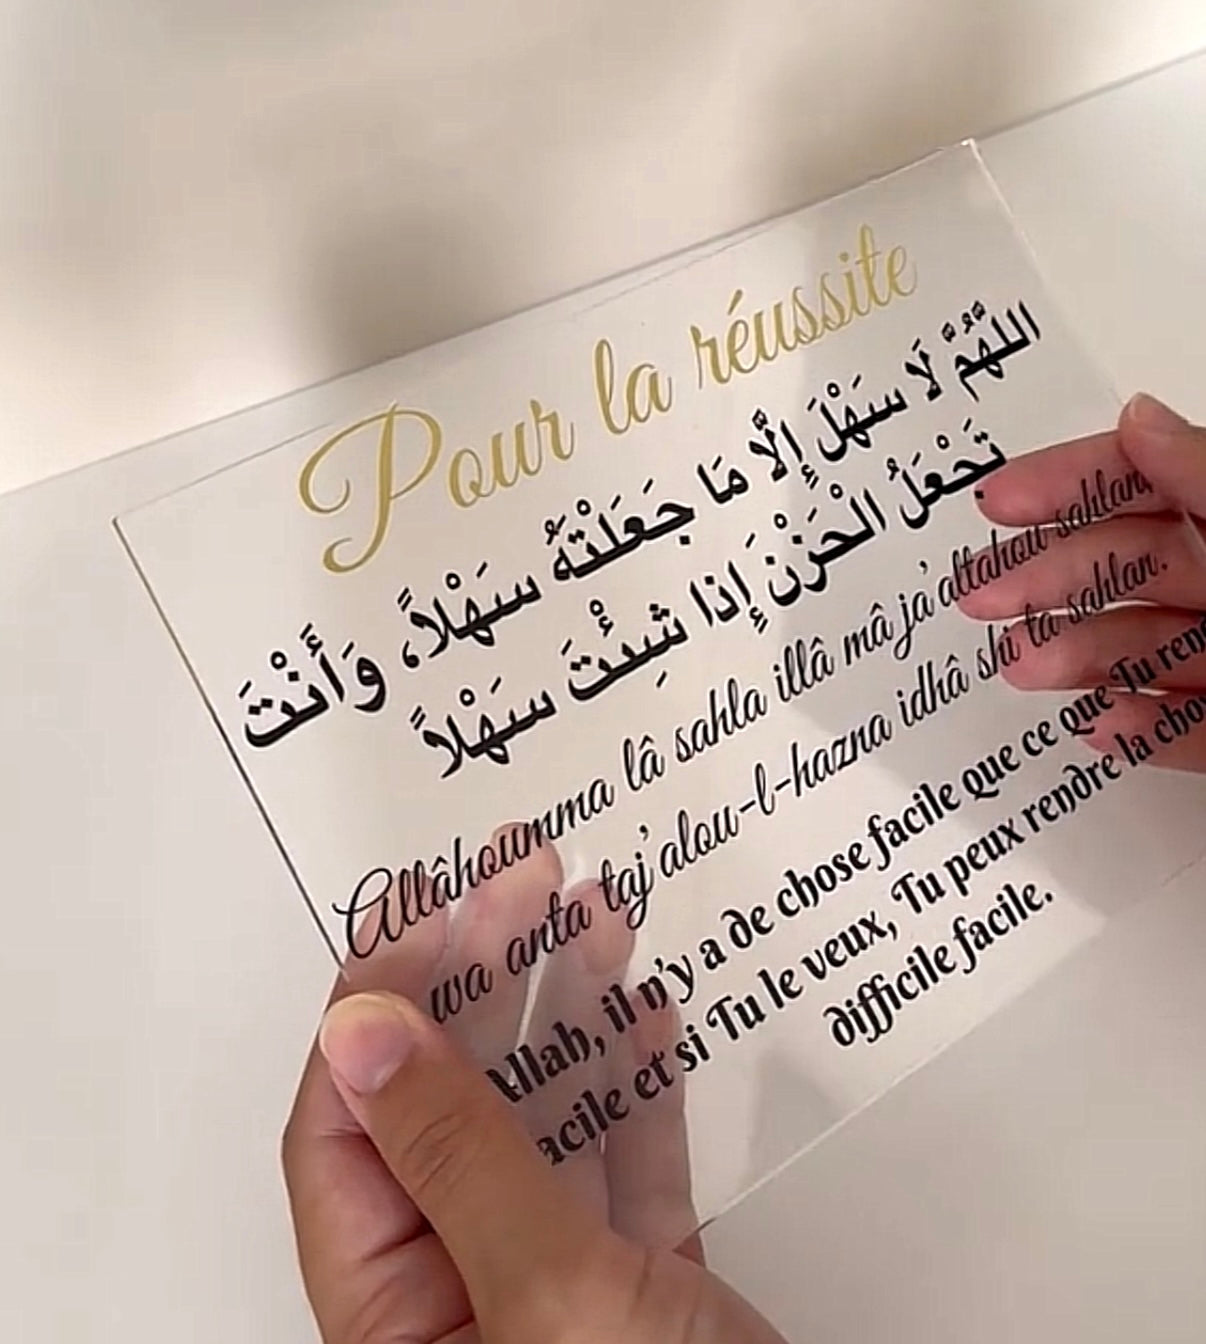 Pour la réussite
اللَّهُمَّ لَا سَهْلَ إِلَّا مَا جَعَلْتَهُ سَهْلاً، وَأَنْتَ
تَجْعَلُ الْحَزْنَ إِذا شِئْتَ سَهْلاً
Allâhoumma lâ sahla illâ mâ ja'altahou sahlan,
wa anta taj'alou-l-hazna idhâ shi'ta sahlan.
Allah, il n'y a de chose facile que ce que Tu rend
acile et si Tu le veux, Tu peux rendre la cho
difficile facile.